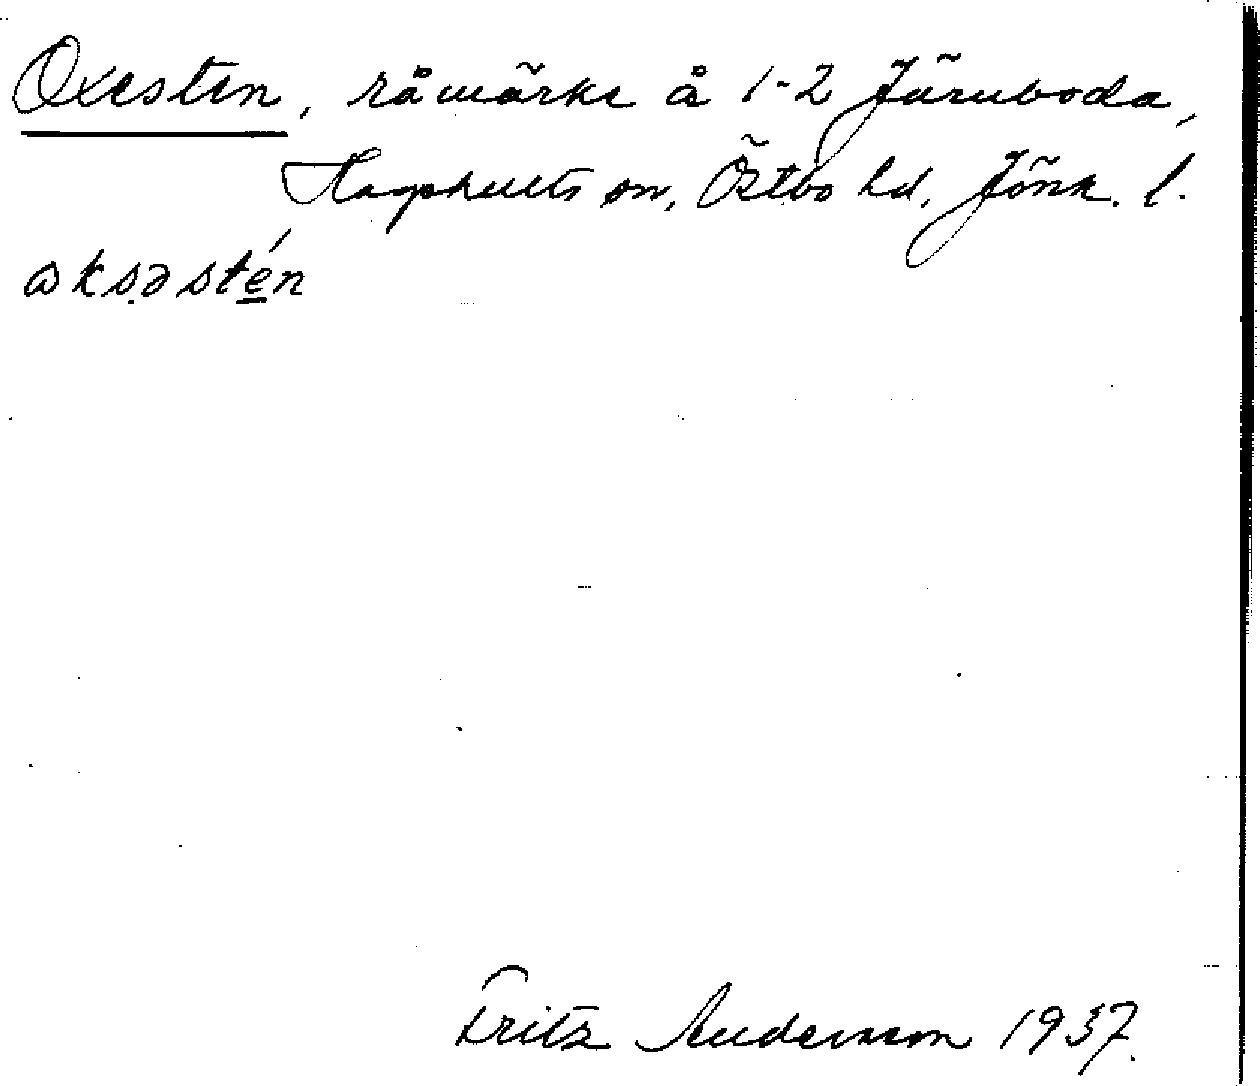 Oxesten, råmärke å 1-2 Järnboda,
Hagshults sn, Östbo hd, Jönk. l.
oksəsté̱n
Fritz Andersson 1937.